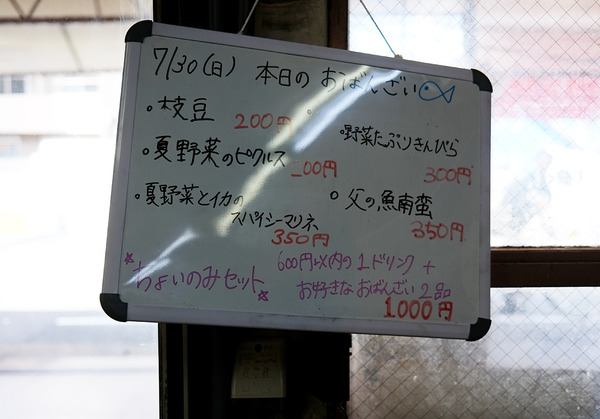 7/30(日) 本日の おばんざい
・枝豆 200円
・夏野菜のピクルス 300円
・夏野菜とイカの
スパイシーマリネ
350円
・野菜たっぷりきんぴら
300円
・父の魚南蛮
350円
☆ちょいのみセット☆
600円以内の1ドリンク +
お好きなおばんざい2品
1000円